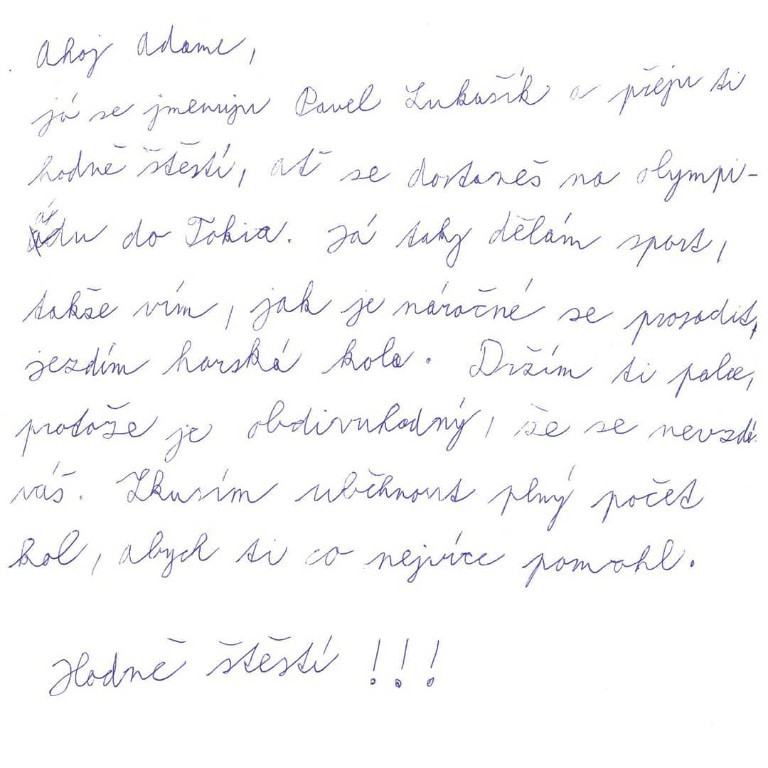 Ahoj Adame,
já se jmenuju Pavel Lukašík a přeju ti
hodně štěstí, ať se dostaneš na olympi-
ádu do Tokia. Já taky dělám sport,
takže vím, jak je náročné se prosadit,
jezdím horská kola. Držím ti palce,
protože je obdivuhodný, že se nevzdá
váš. Zkusím uběhnout plný počet
kol, abych ti co nejvíce pomohl.
Hodně štěstí !!!